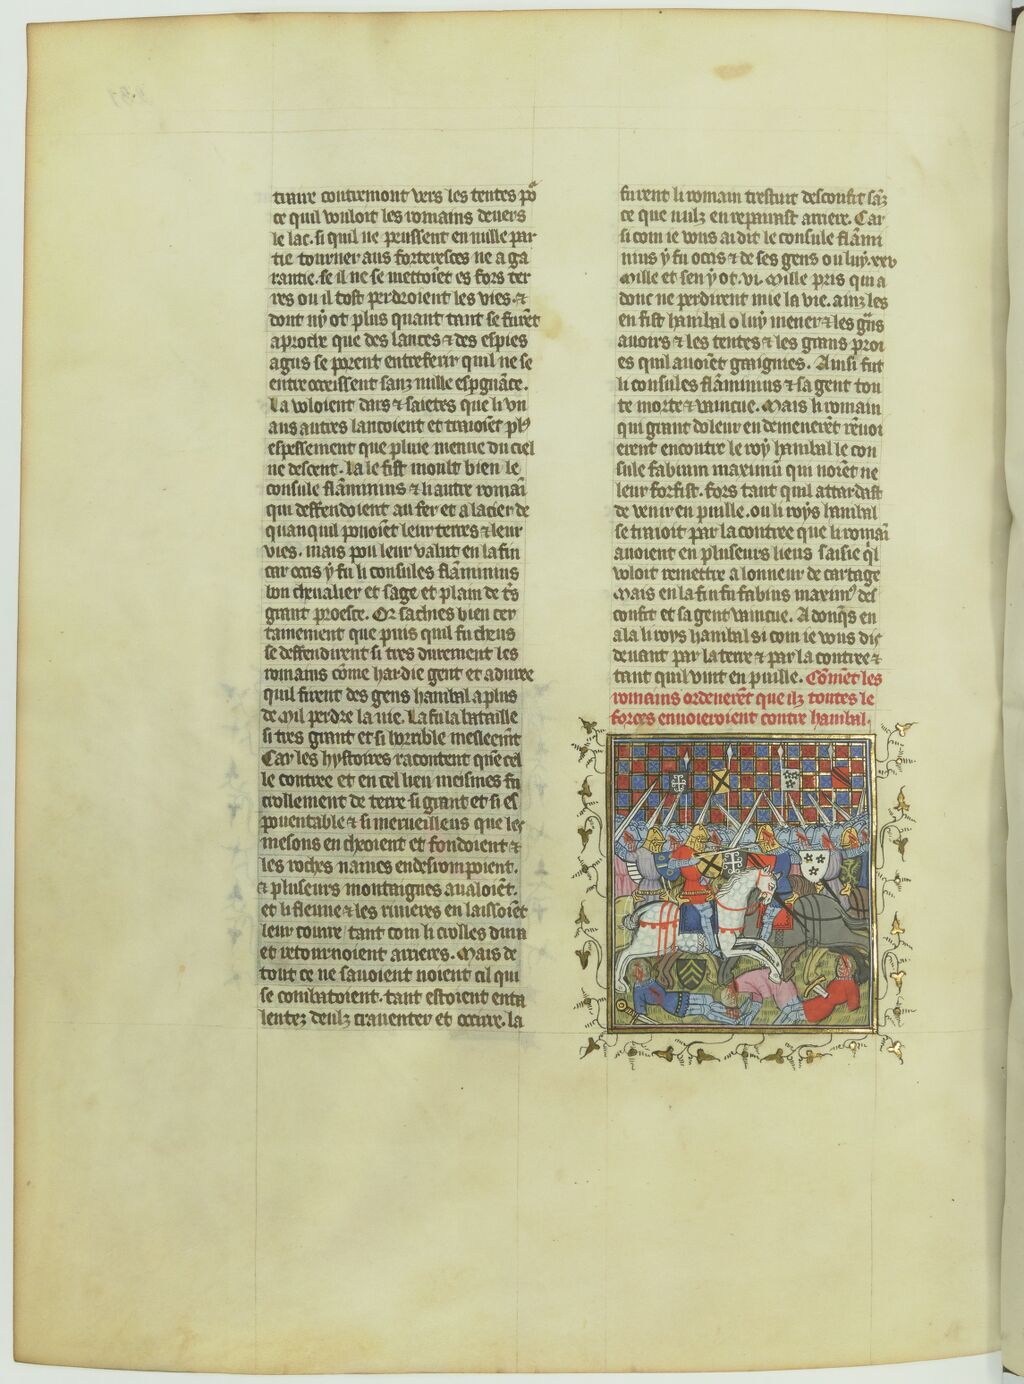 traire contremont vers les tentes po
ce quil vouloit les romains devers
le lac. si quil ne peussent en nulle par
tie tourner aus forteresces ne a ga
rantie. se il ne se mettoiēt es fors ter
res ou il tost perdroient les vies. ⁊
dont ny ot plus quant tant se furēt
aproche que des lances ⁊ des espies
agus se porent entreferir quil ne se
entreoceissent sanz nulle espgnāce.
La voloient dars ⁊ saietes que li vn
aus autres lancoient et traioiēt plꝰ
espessement que pluie menue du ciel
ne descent. la le fist moult bien le
consule flāminius ⁊ li autre romaī
qui deffendoient au fer et a lacier de
quanquil pouoiēt leur terres ⁊ leur
vies. mais pou leur valut en la fin
car occis y fu li consules flāminius
bon chevalier et sage et plain de tˢ
grant proesce. Or sachies bien cer
tainement que puis quil fu cheus
se deffendirent si tres durement les
romains cōme hardie gent et aduree
quil firent des gens hanibal a plus
de Mil perdre la vie. La fu la bataille
si tres grant et si horrible mesleemt
Car les hystoires racontent que ē cel
le contree et en cel lieu meismes fu
crollement de terre si grant et si es
pouentable ⁊ si merueilleus que les
mesons en cheoient et fondoient ⁊
les roches naives en desrompoient.
⁊ pluseurs montaignes aualoiēt.
et li fleuue ⁊ les riuieres en laissoiēt
leur courre tant com li crolles dura
et retournoient arrieres. Mais de
tout ce ne sauoient noient cil qui
se combatoient. tant estoient enta
lentez deulz crauenter et occire. la
furent li romain trestuit desconfit sāz
ce que nulz en repairast arriere. Car
si com ie vous ai dit le consule flāmi
nius y fu occis ⁊ de ses gens o luy. xxv
Mille et sen y ot. vi. Mille pris qui a
donc ne perdirent mie la vie. ainz les
en fist hanibal o luy mener ⁊ les gāns
auoirs ⁊ les tentes ⁊ les grans proi
es quil auoiēt graignies. Ainsi fut
li consules flāminius ⁊ sa gent tou
te morte ⁊ vaincue. Mais li romain
qui grant doleur en demenerēt rēuoi
erent encontre le roy hanibal le con
sule fabium maximū qui noiēt ne
leur forfist. fors tant quil attardast
de venir en puille. ou li roys hanibal
se traioit par la contree que li romaī
auoient en pluseurs lieus saisie ql
voloit remettre a lonneur de cartage
Mais en la fin fu fabius maximꝰ des
confit et sa gent vaincue. Adonqs en
ala li roys hanibal si com ie vous dis
deuant par la terre ⁊ par la contree ⁊
tant quil vint en puille. Cōmēt les
romains ordenerēt que ilz toutes le
forces enuoieroient contre hanibal.